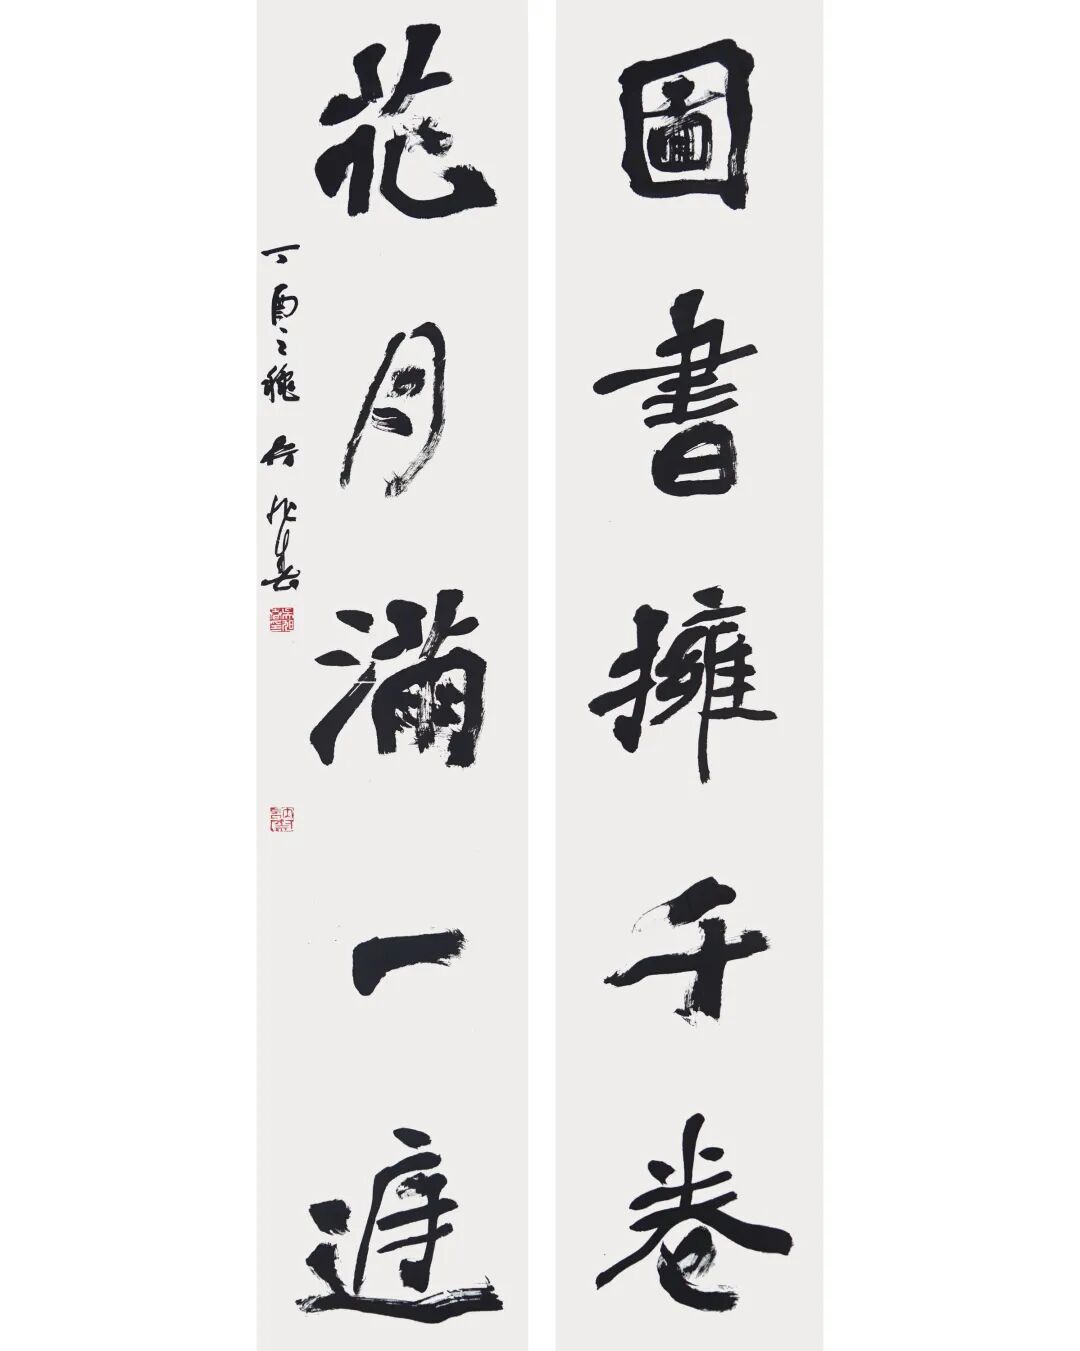 圖書擁千卷
花月滿一庭
丁酉之穐